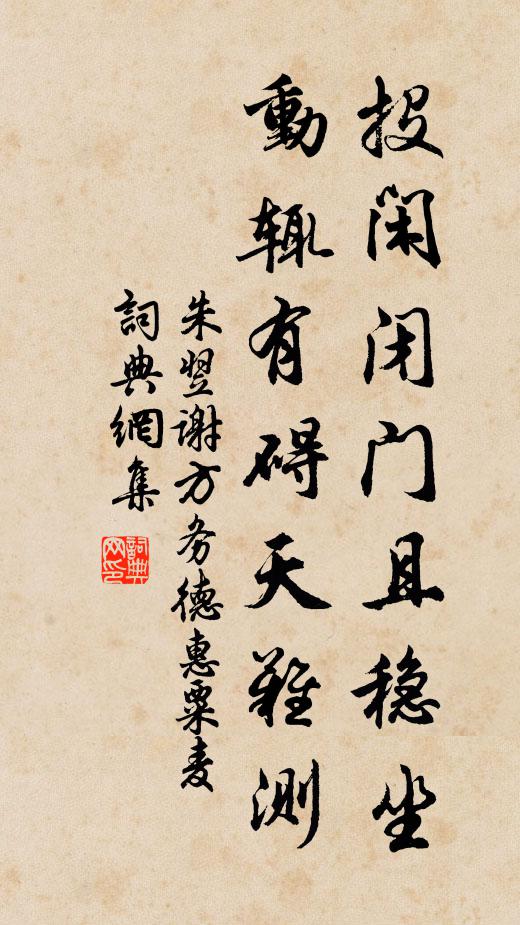 投闲闭门且稳坐
動辄有碍天難测
朱翌谢方务德惠粟麦
詞典網集
詞典网印